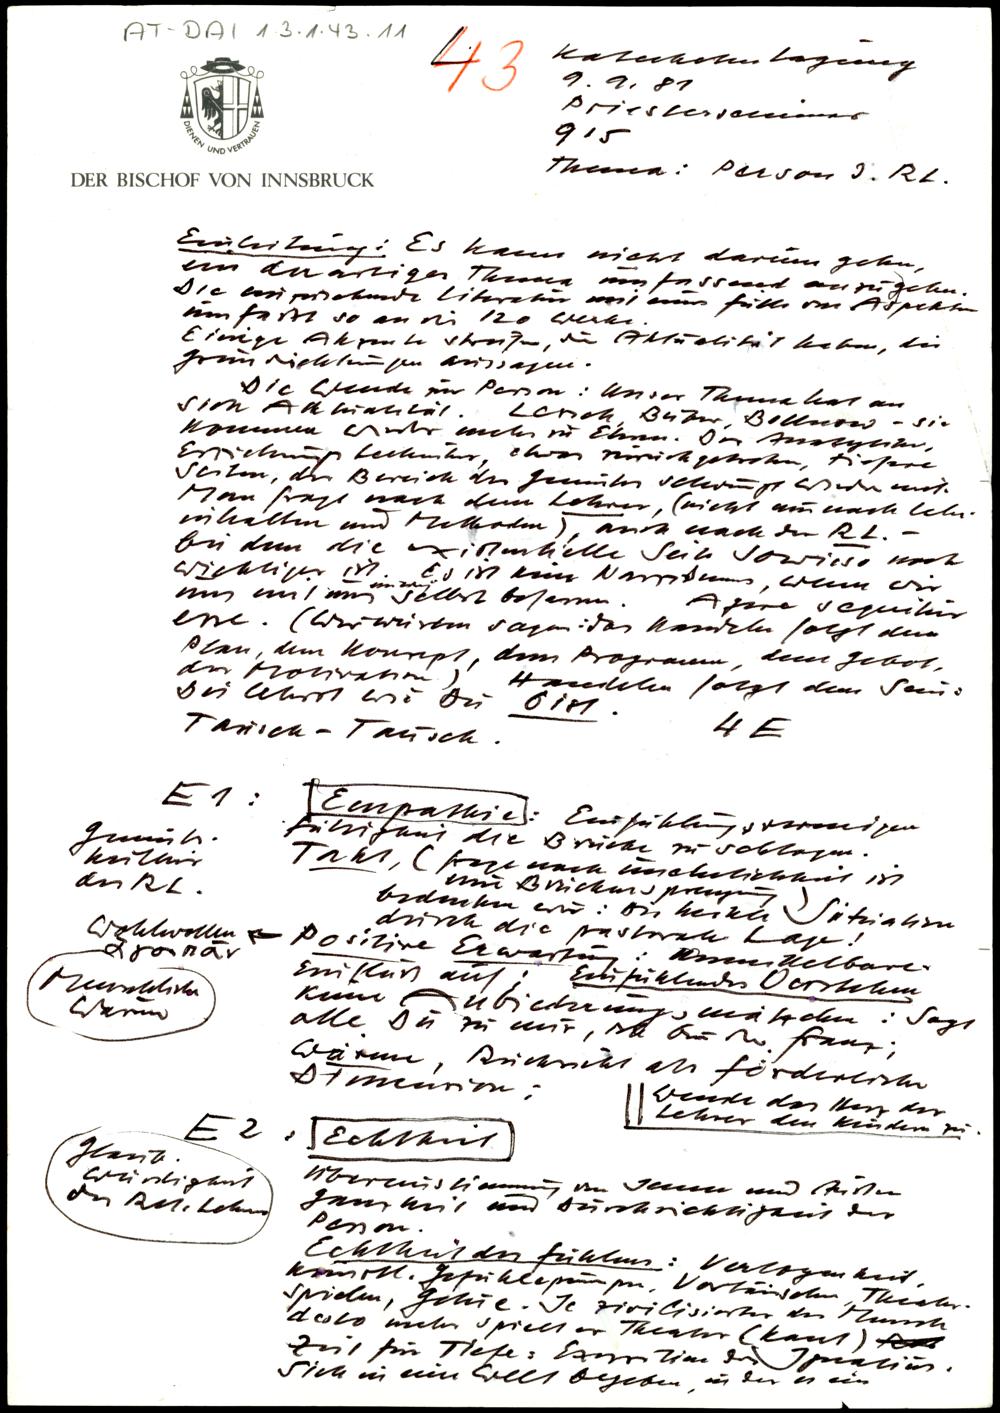 AT-DAI 1.3.1.43.11
43
Katechetentagung
9. 9. 81
Priesterseminar
915
Thema: Person d. RL.
DIENEN UND VERTRAUEN
DER BISCHOF VON INNSBRUCK
Einleitung: Es kann nicht darum gehen,
ein derartiges Thema umfassend anzugehen.
Die einschlägige Literatur mit einer Fülle von Aspekten
umfaßt so an die 120 Werke.
Einige Akzente streifen, die Aktualität haben, die
Grundrichtungen aussagen.
Die Wende zur Person: Unser Thema hat an
sich Aktualität. Lersch, Buber, Bollnow - sie
kommen wieder mehr zu Ehren. Der Analytiker,
Erziehungstechniker, etwas zurückgetreten, tiefere
Seiten, der Bereich des Gemütes schwingt wieder mit.
Man fragt nach dem Lehrer, (nicht nur nach Lehr-
inhalten und Methoden), auch nach der RL. -
bei dem die existentielle Sein sowieso noch
wichtiger ist. Es ist kein Narzißmus, wenn wir
uns mit uns selbst befassen. Agere sequitur
esse. (Wir würden sagen: das Handeln folgt dem
Plan, dem Konzept, dem Programm, dem Gebot,
der Motivation) Handeln folgt dem Sein:
Du lehrst wie Du bist.
Tausch - Tausch. 4 E
E 1 : Empathie: Einfühlungsvermögen
Fähigkeit die Brücke zu schlagen.
Gemüts-
kultur
der RL.
Takt, (Frage nach Unehelichkeit ist
eine Brückensprengung)
bedenken wir: die heikle Situation
durch die pastorale Lage!
Wohlwollen
Positive Erwartung: Unmittelbare
Einfluß auf! Einfühlendes Verstehen
Menschliche
Wärme
keine Anbiederungsmätzchen: Sagt
alle Du zu mir, ich bin der Franz;
Wärme, Rücksicht als förderliche
Dimension;
Wende das Herz der
Lehrer den Kindern zu.
E 2 : Echtheit
Glaub-
würdigkeit
des Rel. Lehrers
Übereinstimmung von Innen und Außen
Ganzheit und Durchsichtigkeit der
Person.
Echtheit des Fühlens: Verlogenheit,
künstl. Gefühlepumpen, Vortäuschen, Theater-
spielen, Getue. Je zivilisierter der Mensch
desto mehr spielt er Theater (Kant)
Zeit für Tiefe: Exerzitien des Ignatius.
Sich in eine Welt begeben, in der es ein